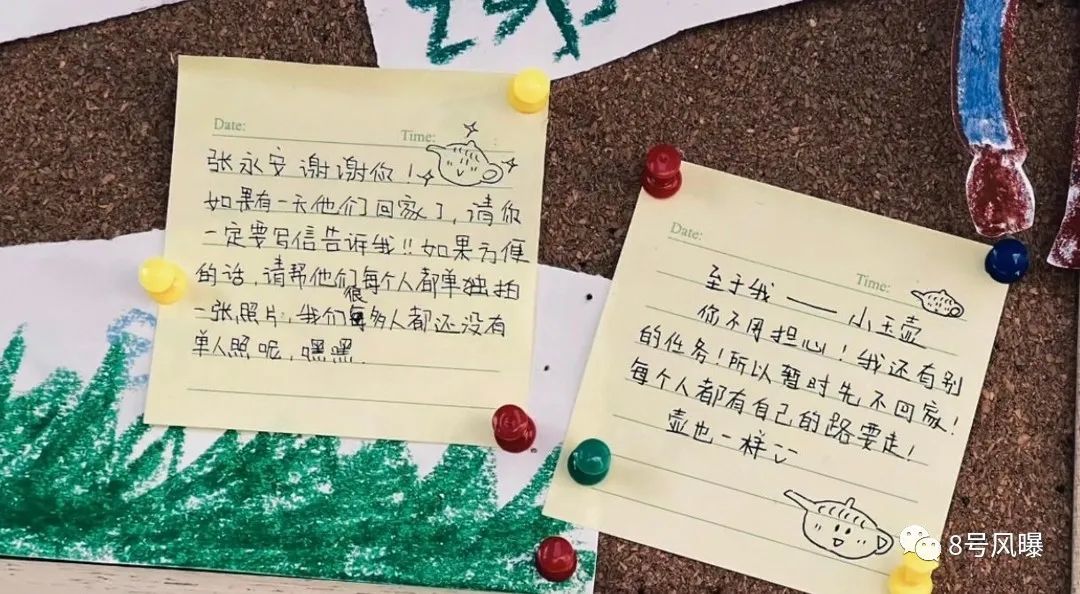 Date:
Time: :
张永安谢谢你！
如果有一天他们回家了，请你
一定要写信告诉我!!如果方便
的话，请帮他们每个人都单独拍
一张照片，我们很多人都还没有
单人照呢，嘿嘿.
Date:
Time:
至于我——小玉壶
你不用担心！我还有别
的任务！所以暂时先不回家！
每个人都有自己的路要走！
壶也一样
8号风曝